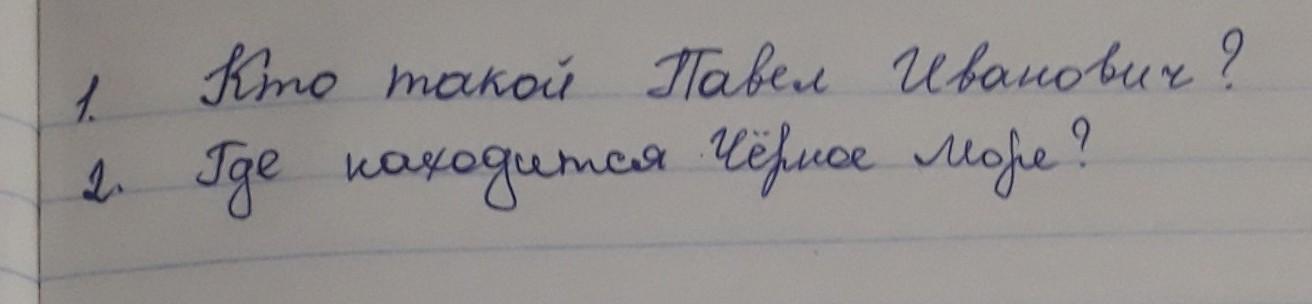 1. Кто такой Павел Иванович?
2. Где находится Чёрное море?